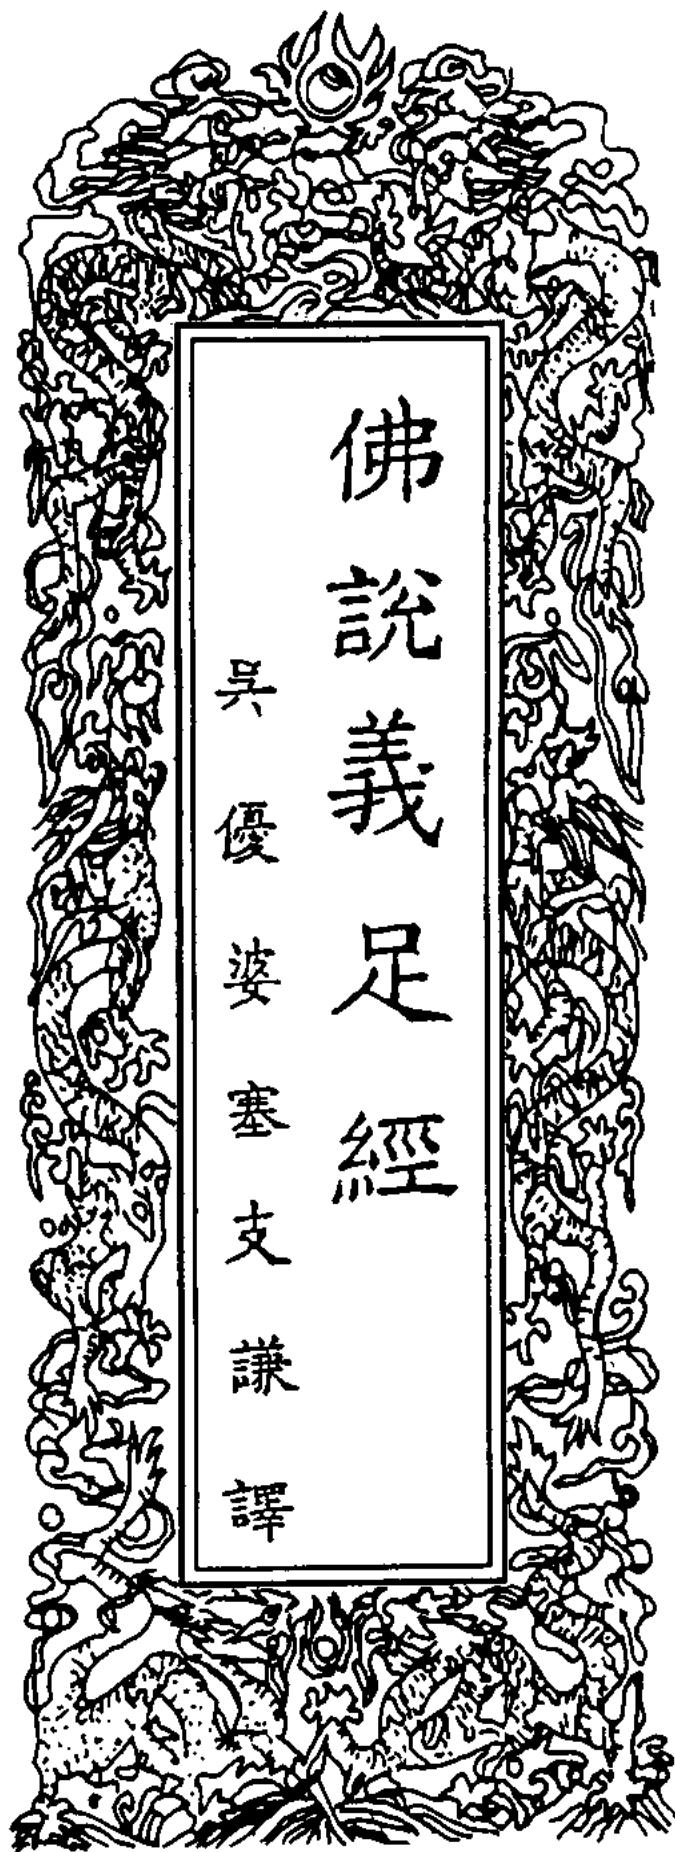 佛說義足經
吳優婆塞支謙譯